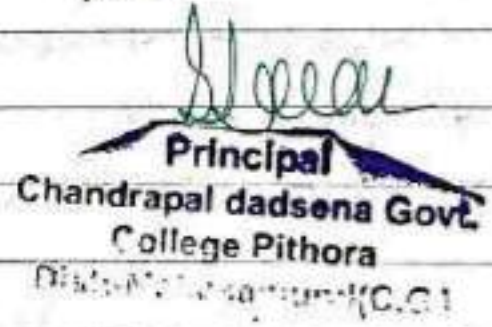 Principal
Chandrapal dadsena Govt.
College Pithora
(C.G.)